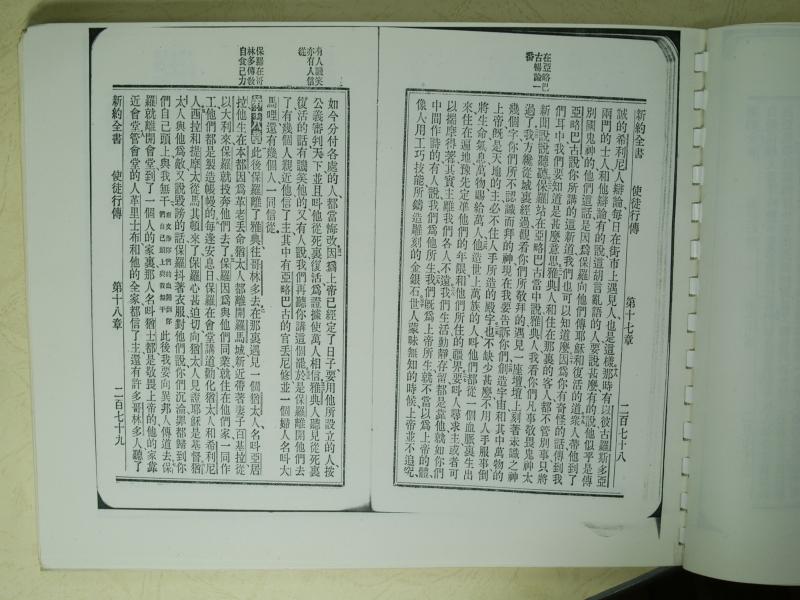 在亞略巴
古暢論一
番
新約全書 使徒行傳 第十七章 二百七十八
誠的希利尼人辯論每日在街市上遇見人也是這樣那時有以彼古羅斯多亞
兩門的士人和他辯論有的說這胡言亂語的人要說甚麼有的說他似乎是傳
別國鬼神的他們這話是因爲保羅向他們傳耶穌和復活的道衆人帶他到了
亞略巴古說你所講的這新道我們也可以知道麼因爲你有奇怪的話傳到我
們耳中我們要知道是甚麼意思雅典人和住在那裏的客人都不管別事只將
新聞說說聽聽保羅站在亞略巴古當中說雅典人我看你們凡事敬畏鬼神太
過了我方纔從城裏經過觀看你們所敬拜的遇見一座壇壇上刻著未識之神
幾個字你們所不認識而拜的神現在我要告訴你們創造宇宙和其中萬物的
上帝旣是天地的主必不住人手所造的殿宇也不缺少甚麼不用人手服事倒
將生命氣息萬物賜給萬人他造世上萬族的人叫他們都從一個血脈裏生出
來住在遍地豫先定準他們的年限和他們所住的疆界要叫人尋求主或者可
以揣摩得著其實主離我們各人不遠我們生活動靜存留都是靠他就如你們
中間作詩的有人說我們爲他所生我們旣爲上帝所生就不當以爲上帝的體
像人用工巧技能所鑄造雕刻的金銀石世人蒙昧無知的時候上帝並不追究
有人譏笑
亦有人信
從
保羅在哥
林多傳教
自食己力
如今分付各處的人都當悔改因爲上帝已經定了日子要用他所設立的人按
公義審判天下並且叫他從死裏復活爲證據使萬人相信雅典人聽見從死裏
復活的話有譏笑他的又有人說我們再聽你講這個罷於是保羅離開他們去
了有幾個人親近他信了主其中有亞略巴古的官丟尼修並一個婦人名叫大
馬哩還有幾個人一同信從
此後保羅離了雅典往哥林多去在那裏遇見一個猶太人名叫亞居
拉他生在本都因爲革老丟命猶太人都離開羅馬城新近帶著妻子百基拉從
以大利來保羅就投奔他們去了保羅因爲與他們同業就住在他們家一同作
工他們都是製造帳幔的每逢安息日保羅在會堂講道勸化猶太人和希利尼
人西拉和提摩太從馬其頓來了保羅心甚迫切向猶太人見證耶穌是基督猶
太人與他爲敵又說毀謗的話保羅抖著衣服對他們說你們沉淪罪都歸到你
們自己頭上與我無干 此後我要向異邦人傳道去保
羅就離開會堂到了一個人的家裏那人名叫猶士都是敬畏上帝的他的家靠
近會堂管會堂的人基利士布和他的全家都信了主還有許多哥林多人聽了
新約全書 使徒行傳 第十八章 二百七十九